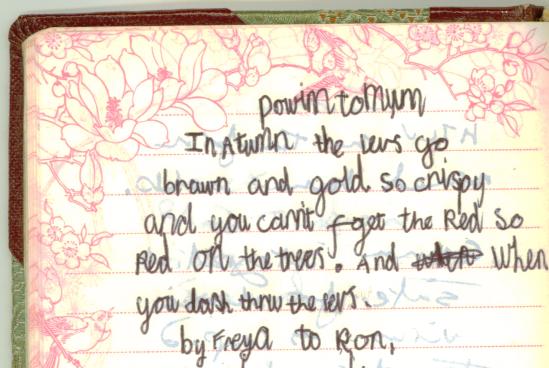 powim to Mum
In Atumn the levs go
brawn and gold so crispy
and you cann't fget the Red so
Red on the trees. And when When
you dash thrw the levs.
by Freya to Ron,